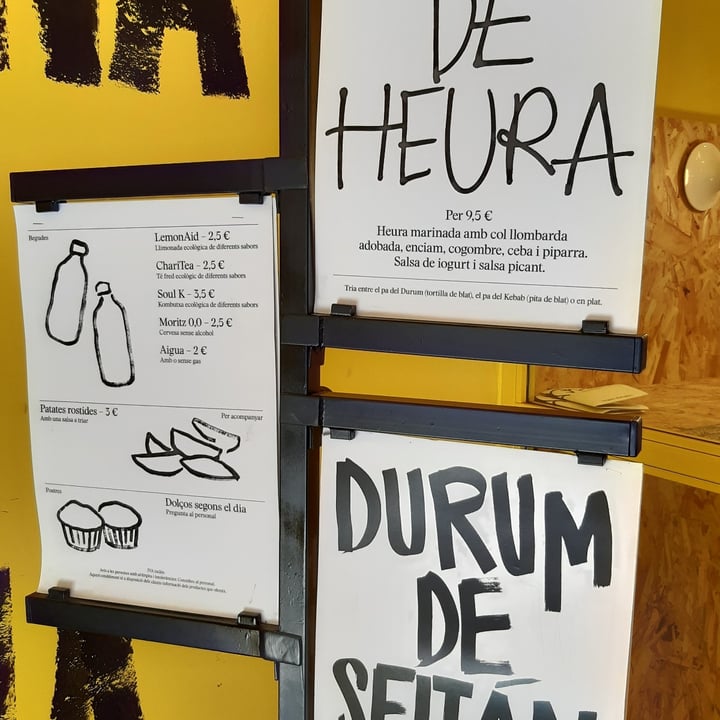 Begudes
LemonAid – 2,5 €
Llimonada ecològica de diferents sabors
ChariTea – 2,5 €
Té fred ecològic de diferents sabors
Soul K – 3,5 €
Kombutxa ecològica de diferents sabors
Moritz 0,0 – 2,5 €
Cervesa sense alcohol
Aigua – 2 €
Amb o sense gas
Patates rostides – 3 €
Amb una salsa a triar
Per acompanyar
Postres
Dolços segons el dia
Pregunta al personal
DE
HEURA
Per 9,5 €
Heura marinada amb col llombarda
adobada, enciam, cogombre, ceba i piparra.
Salsa de iogurt i salsa picant.
Tria entre el pa del Durum (tortilla de blat), el pa del Kebab (pita de blat) o en plat.
DURUM
DE
SEITÁN